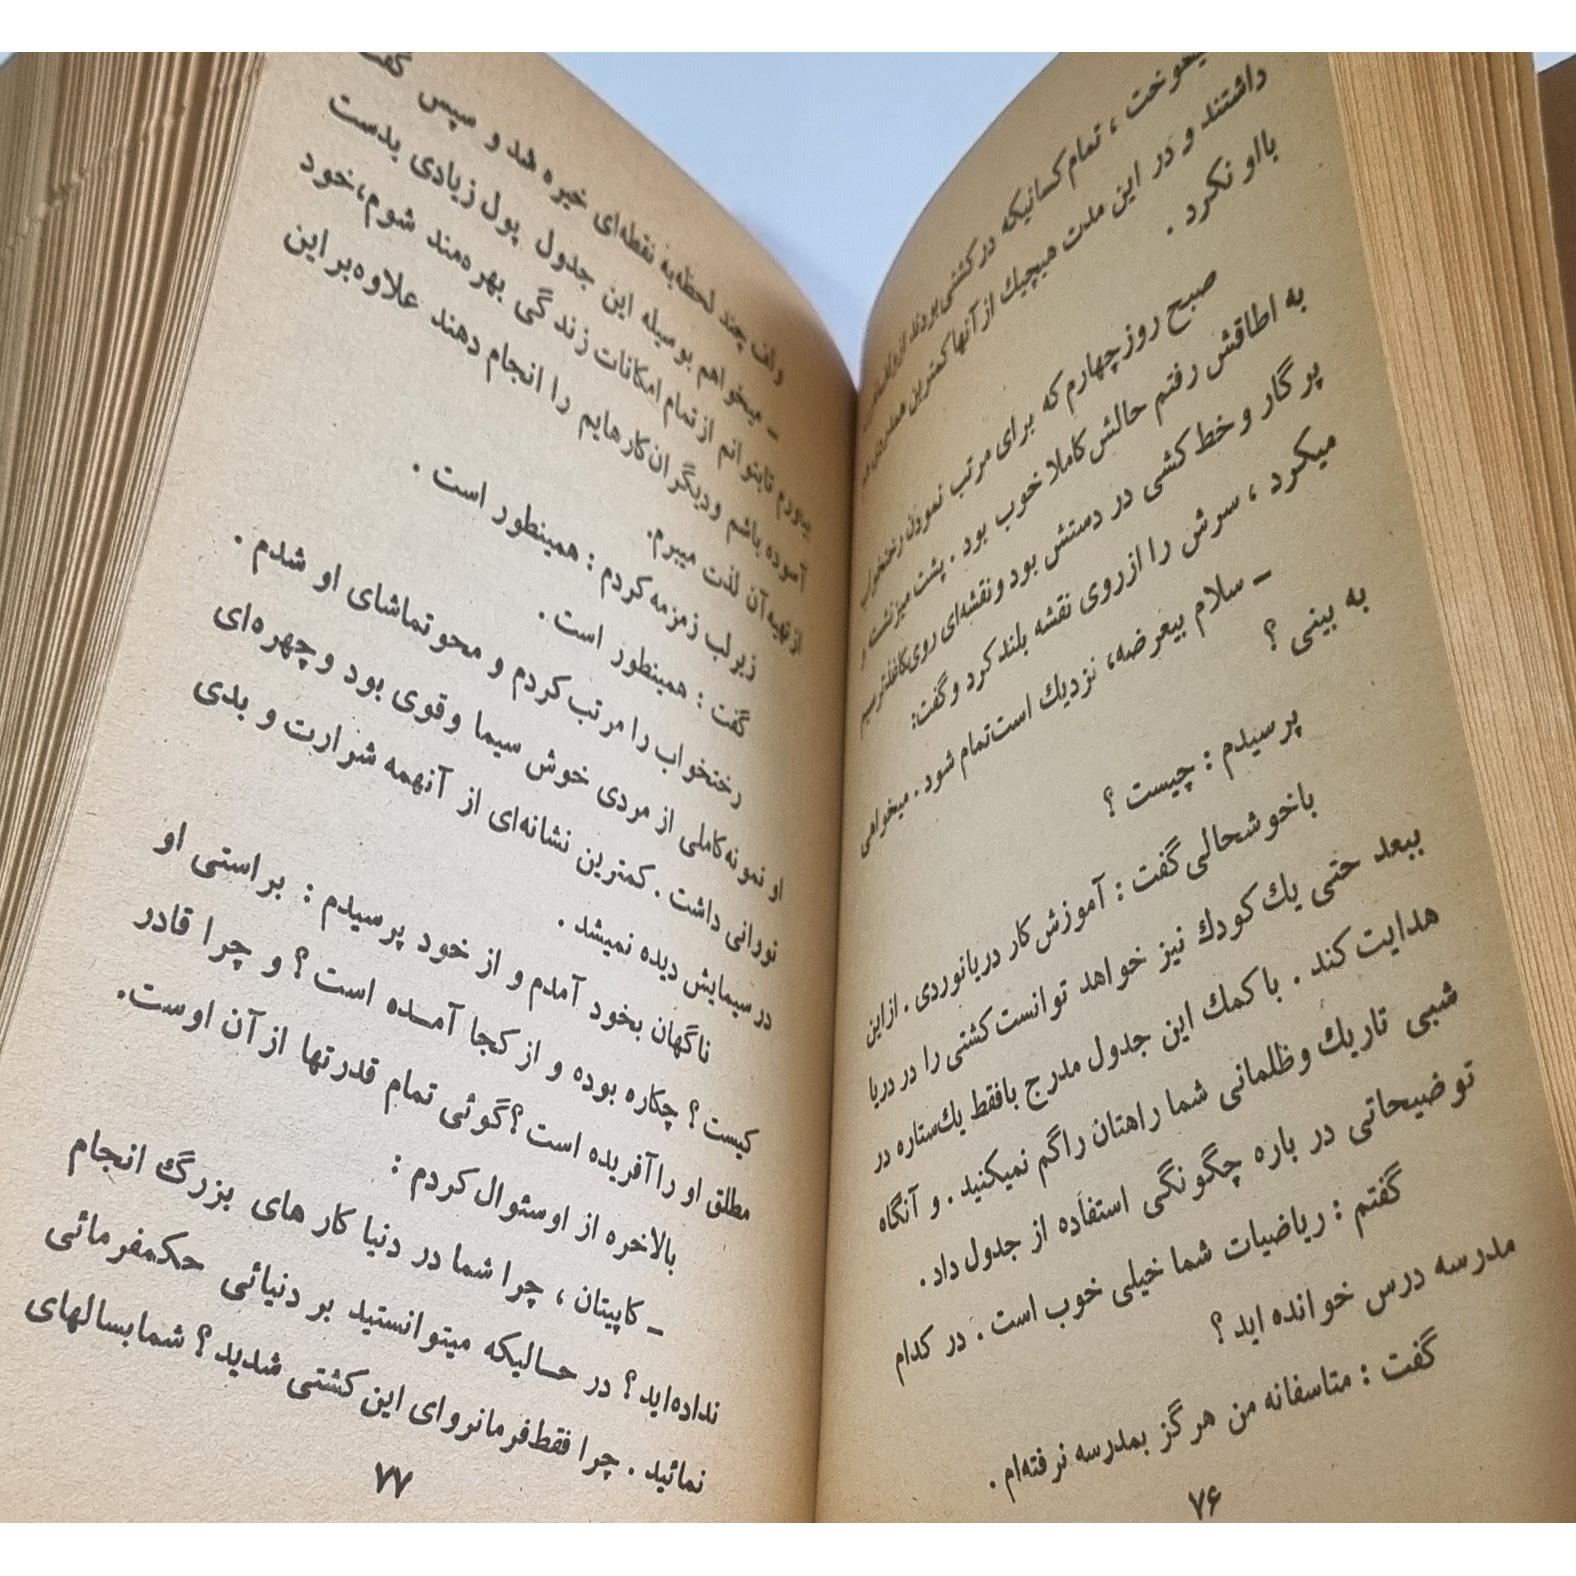 ، تمام کسانیکه در کشتی بودند
داشتند و در این مدت هیچیك از آنها کمترین
بااو نکرد .
صبح روز چهارم که برای مرتب نمودن رختخواب
به اطاقش رفتم حالش کاملا خوب بود . پشت میز نشسته و
پرگار و خط کشی در دستش بود و نقشه‌ای روی کاغذ ترسیم
میکرد ، سرش را از روی نقشه بلند کرد و گفت:
ـ سلام بیعرضه، نزدیك است تمام شود . میخواهی
به بینی ؟
پرسیدم : چیست ؟
باخوشحالی گفت : آموزش کار دریانوردی . ازاین
ببعد حتی یك کودك نیز خواهد توانست کشتی را در دریا
هدایت کند . با کمك این جدول مدرج بافقط یك ستاره در
شبی تاریك و ظلمانی شما راهتان راگم نمیکنید . و آنگاه
توضیحاتی در باره چگونگی استفاده از جدول داد .
گفتم : ریاضیات شما خیلی خوب است . در کدام
مدرسه درس خوانده اید ؟
گفت : متاسفانه من هرگز بمدرسه نرفته‌ام .
۷۶
ولف چند لحظه‌به نقطه‌ای خیره شد و سپس
ـ میخواهم بوسیله این جدول پول زیادی بدست
بیاورم تابتوانم ازتمام امکانات زندگی بهره‌مند شوم،خود
آسوده باشم ودیگران کارهایم را انجام دهند علاوه‌براین
ازتهیه آن لذت میبرم.
زیرلب زمزمه کردم : همینطور است .
گفت : همینطور است .
رختخواب را مرتب کردم و محو تماشای او شدم .
او نمونه کاملی از مردی خوش سیما و قوی بود و چهره‌ای
نورانی داشت . کمترین نشانه‌ای از آنهمه شرارت و بدی
درسیمایش دیده نمیشد .
ناگهان بخود آمدم و از خود پرسیدم : براستی او
کیست ؟ چکاره بوده و از کجا آمده است ؟ و چرا قادر
مطلق او راآفریده است ؟گوئی تمام قدرتها ازآن اوست.
بالاخره از اوسئوال کردم :
ـ کاپیتان ، چرا شما در دنیا کار های بزرگ انجام
نداده‌اید ؟ در حالیکه میتوانستید بر دنیائی حکمفرمائی
نمائید . چرا فقط فرمانروای این کشتی شدید ؟ شما بسالهای
۷۷